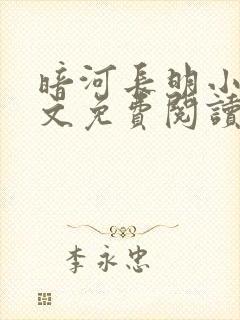 暗河長明小
文免費閱讀
李永忠